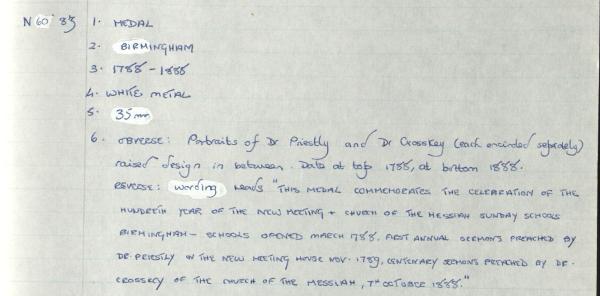 N60'83 1. MEDAL
2. BIRMINGHAM
3. 1788 - 1888
4. WHITE METAL
5. 35mm
6. OBVERSE: Portraits of Dr Priestly and Dr Crosskey (each encircled seperately)
raised design in between. Date at top 1788, at bottom 1888.
REVERSE: wording reads "THIS MEDAL COMMEMORATES THE CELEBRATION OF THE
HUNDRETH YEAR OF THE NEW MEETING + CHURCH OF THE MESSIAH SUNDAY SCHOOLS
BIRMINGHAM - SCHOOLS OPENED MARCH 1788. FIRST ANNUAL SERMONS PREACHED BY
DR. PRIESTLY IN THE NEW MEETING HOUSE NOV. 1789, CENTENARY SERMONS PREACHED BY DR.
CROSSKEY OF THE CHURCH OF THE MESSIAH, 7TH OCTOBER 1888."